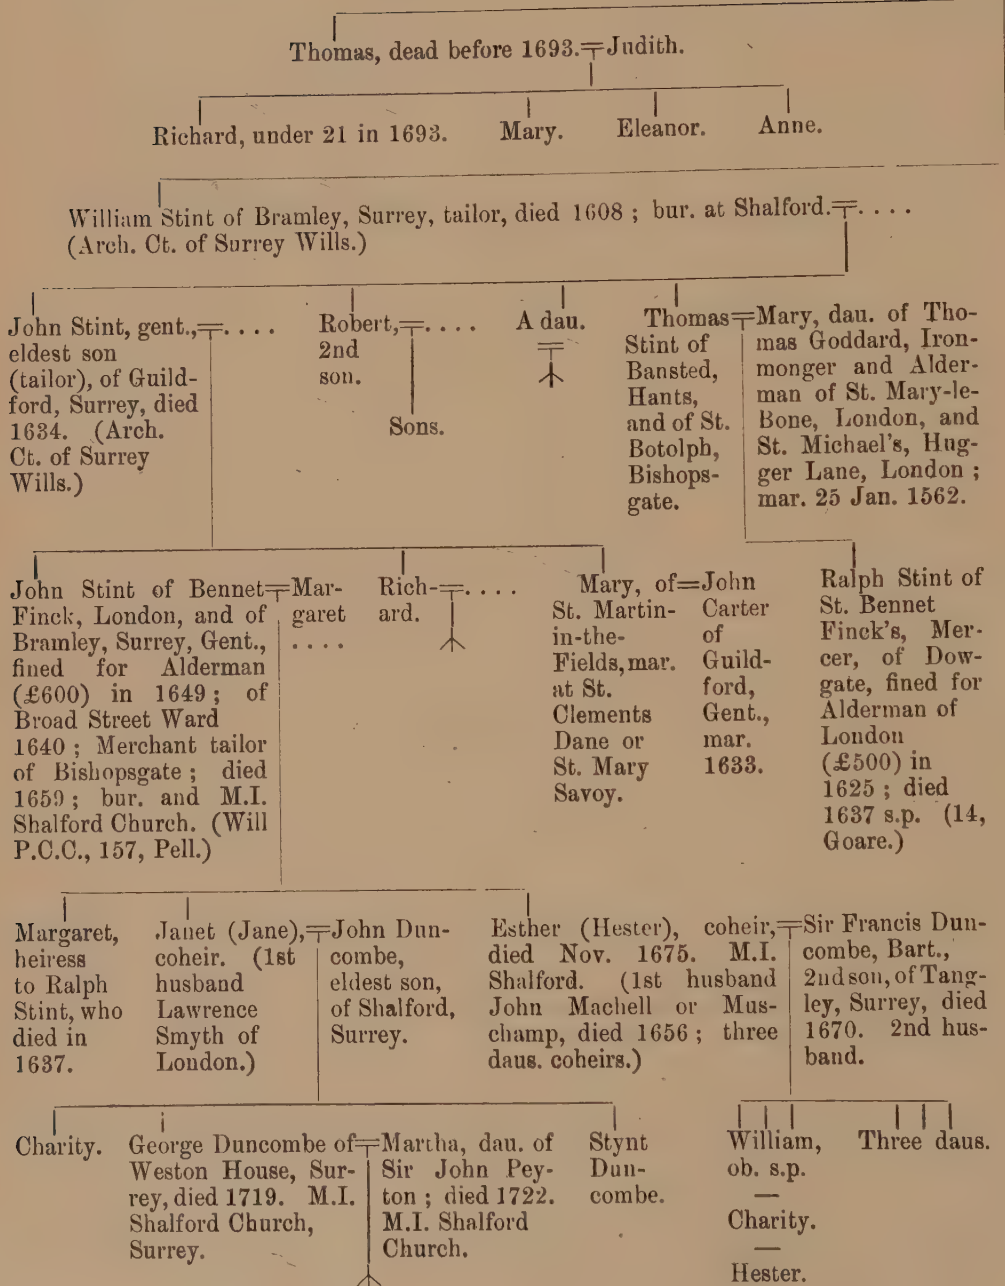 Thomas, dead before 1693.=Judith.
Richard, under 21 in 1693. Mary. Eleanor. Anne.
William Stint of Bramley, Surrey, tailor, died 1608 ; bur. at Shalford.=. . . .
(Arch. Ct. of Surrey Wills.)
John Stint, gent.,=. . . .
eldest son
(tailor), of Guild-
ford, Surrey, died
1634. (Arch.
Ct. of Surrey
Wills.)
Robert,=. . . .
2nd
son.
Sons.
A dau.
=
Thomas=
Stint of
Bansted,
Hants,
and of St.
Botolph,
Bishops-
gate.
Mary, dau. of Tho-
mas Goddard, Iron-
monger and Alder-
man of St. Mary-le-
Bone, London, and
St. Michael's, Hug-
ger Lane, London ;
mar. 25 Jan. 1562.
John Stint of Bennet=
Finck, London, and of
Bramley, Surrey, Gent.,
fined for Alderman
(£600) in 1649 ; of
Broad Street Ward
1640 ; Merchant tailor
of Bishopsgate ; died
1659 ; bur. and M.I.
Shalford Church. (Will
P.C.C., 157, Pell.)
Mar-
garet
. . . .
Rich-=. . . .
ard.
Mary, of=
St. Martin-
in-the-
Fields, mar.
at St.
Clements
Dane or
St. Mary
Savoy.
John
Carter
of
Guild-
ford,
Gent.,
mar.
1633.
Ralph Stint of
St. Bennet
Finck's, Mer-
cer, of Dow-
gate, fined for
Alderman of
London
(£500) in
1625 ; died
1637 s.p. (14,
Goare.)
Margaret,
heiress
to Ralph
Stint, who
died in
1637.
Janet (Jane),=
coheir. (1st
husband
Lawrence
Smyth of
London.)
John Dun-
combe,
eldest son,
of Shalford,
Surrey.
Esther (Hester), coheir,=
died Nov. 1675. M.I.
Shalford. (1st husband
John Machell or Mus-
champ, died 1656 ; three
daus. coheirs.)
Sir Francis Dun-
combe, Bart.,
2nd son, of Tang-
ley, Surrey, died
1670. 2nd hus-
band.
Charity.
George Duncombe of=
Weston House, Sur-
rey, died 1719. M.I.
Shalford Church,
Surrey.
Martha, dau. of
Sir John Pey-
ton ; died 1722.
M.I. Shalford
Church.
Stynt
Dun-
combe.
William,
ob. s.p.
—
Charity.
—
Hester.
Three daus.